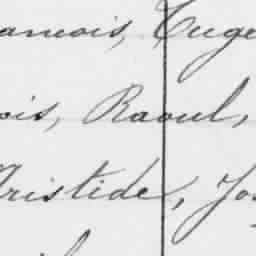 ancois, Euge
ois, Raoul,
Aristide, Jos